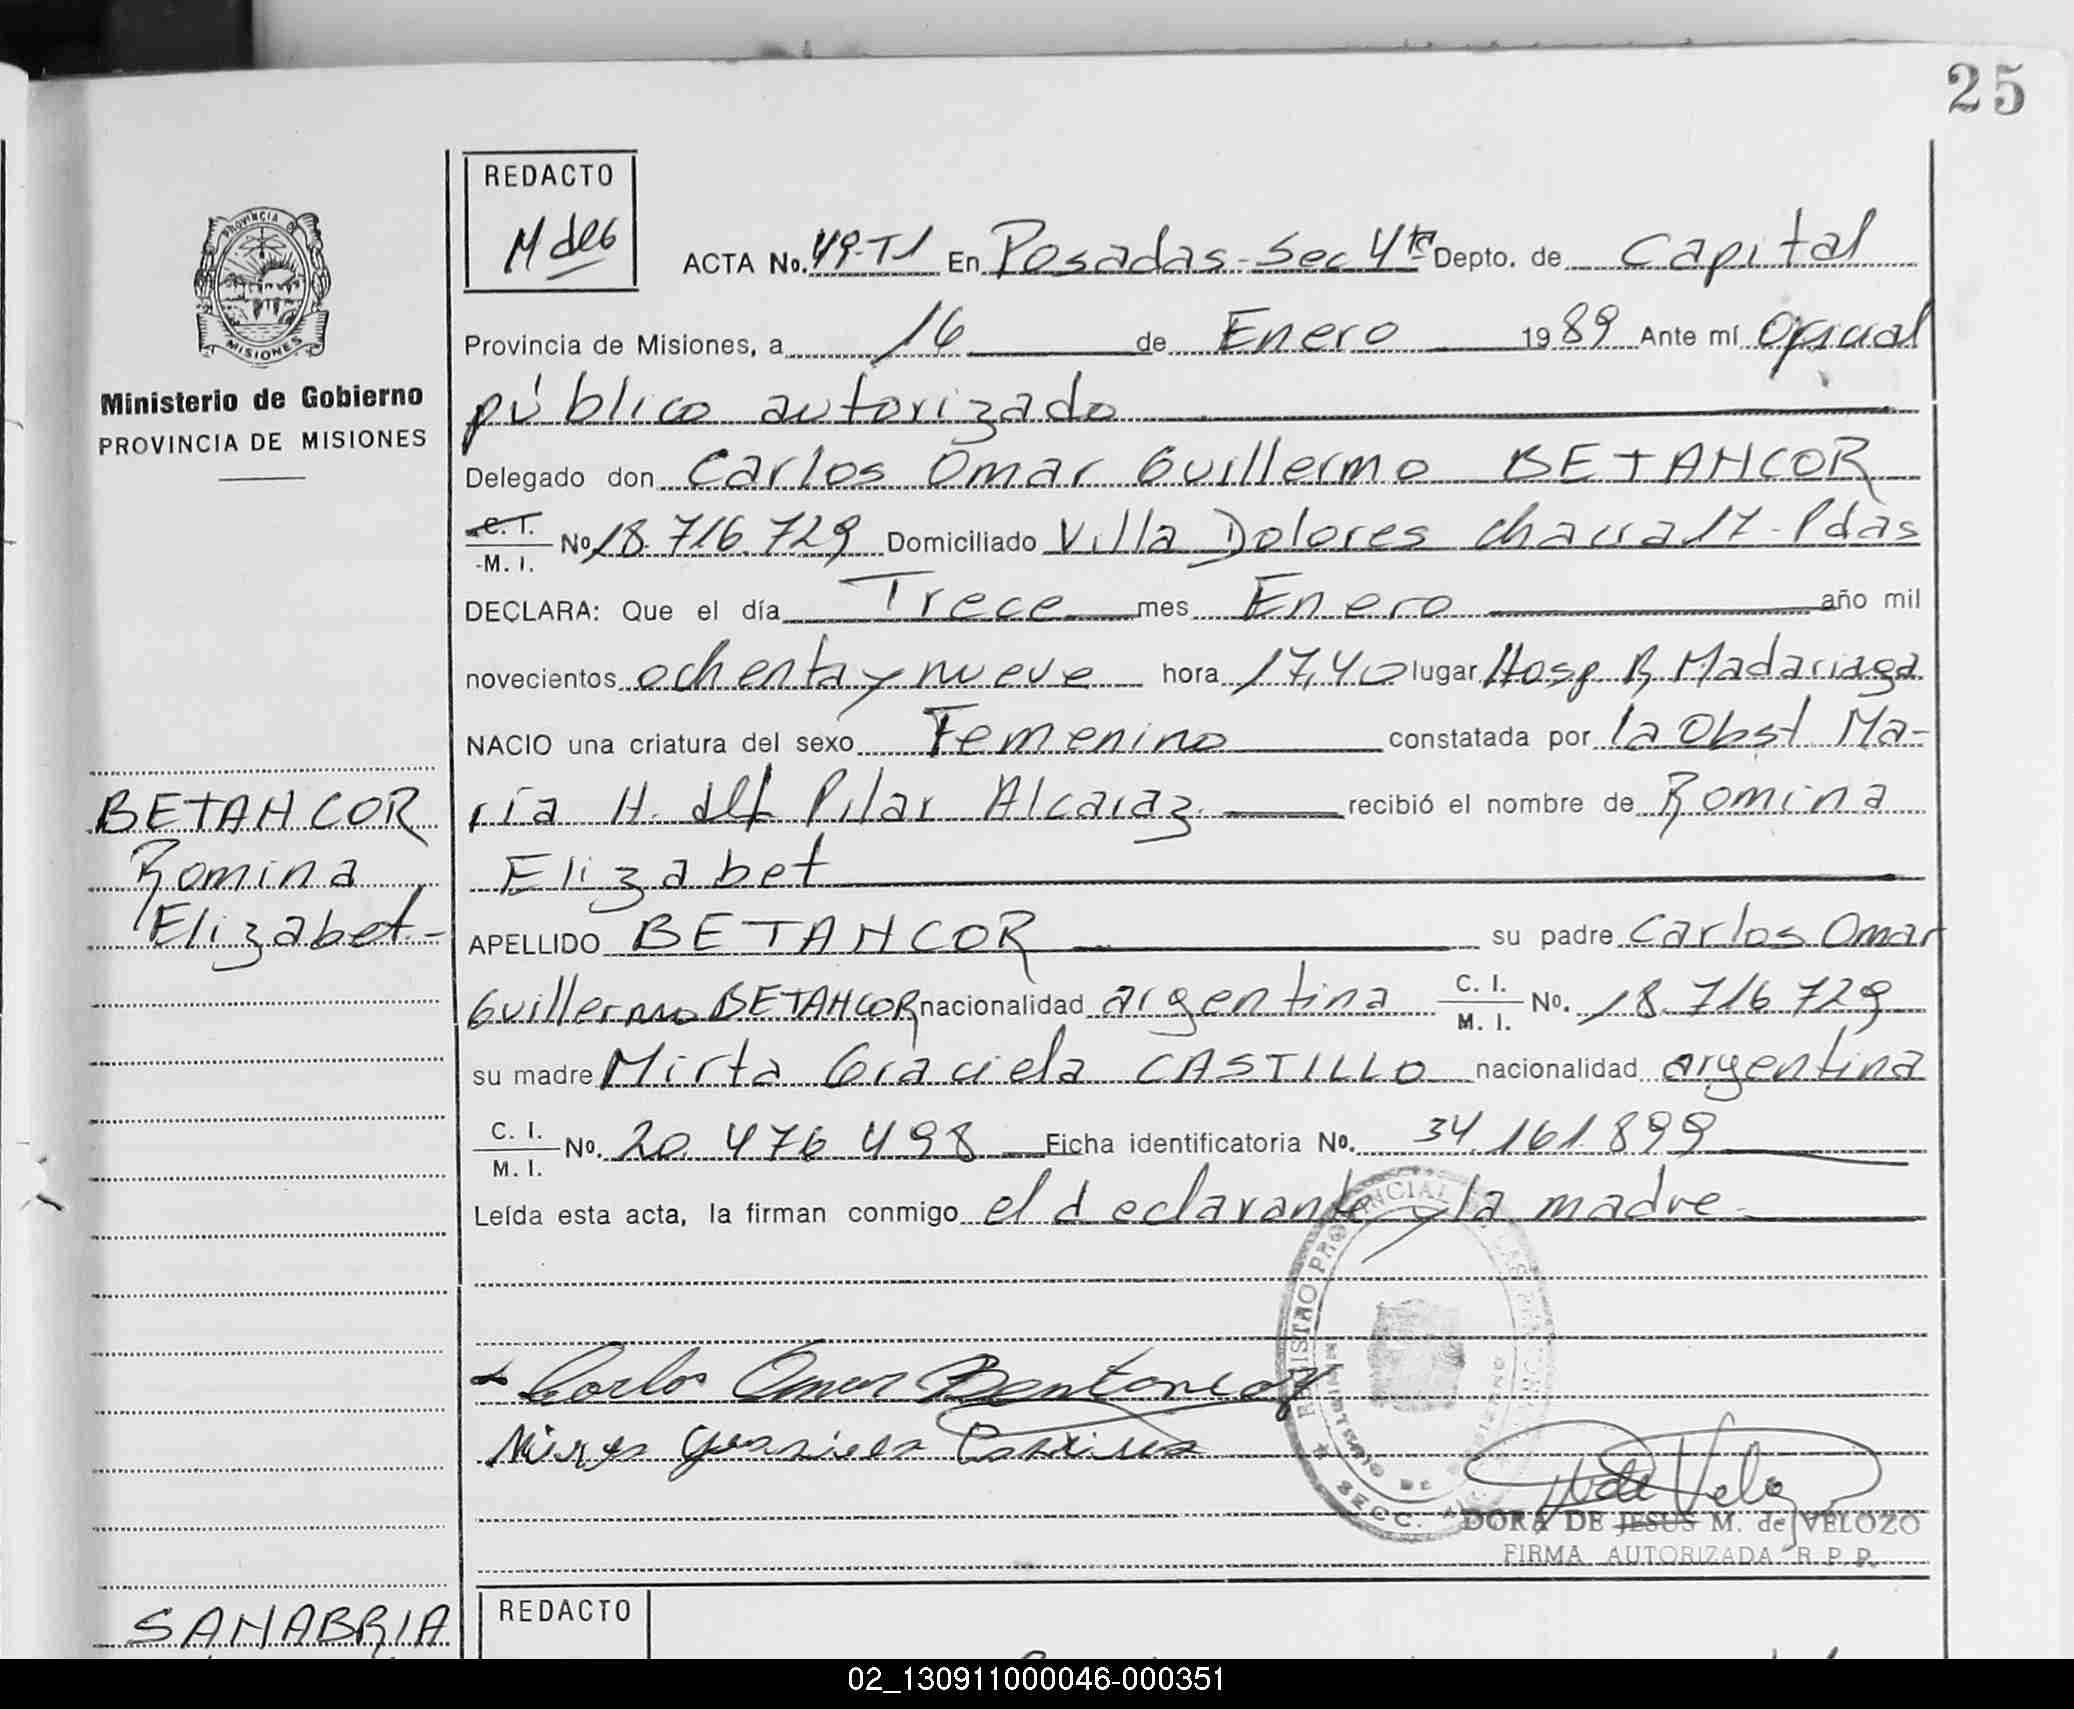 25
REDACTO
M de G
ACTA No. 49-T1 En Posadas-Sec 4ta Depto. de Capital
Provincia de Misiones, a 16 de Enero 1989 Ante mí Oficial
público autorizado
Delegado don Carlos Omar Guillermo BETANCOR
C. I.
M. I. No 18.716.729 Domiciliado Villa Dolores chacra 17-Pdas
DECLARA: Que el día Trece mes Enero año mil
novecientos ochenta y nueve hora 17,40 lugar Hosp R Madariaga
NACIO una criatura del sexo Femenino constatada por la Obst Ma-
ría H. del Pilar Alcaraz recibió el nombre de Romina
Elizabet
APELLIDO BETANCOR su padre Carlos Omar
Guillermo BETANCOR nacionalidad argentina C. I. M. I. No. 18.716.729
su madre Mirta Graciela CASTILLO nacionalidad argentina
C. I. M. I. No. 20.476.498 Ficha identificatoria No. 34.161.899
Leída esta acta, la firman conmigo el declarante y la madre-
Carlos Omar Bentancor
Mirta Graciela Castillo
DORA DE JESUS M. de VELOZO
FIRMA AUTORIZADA R.P.P.
PROVINCIA D
MISIONES
Ministerio de Gobierno
PROVINCIA DE MISIONES
BETANCOR
Romina
Elizabet-
SANABRIA
REDACTO
REGISTRO PROVINCIAL DE LAS PERSONAS
SECC.
MINISTERIO DE GOBIERNO
02_130911000046-000351